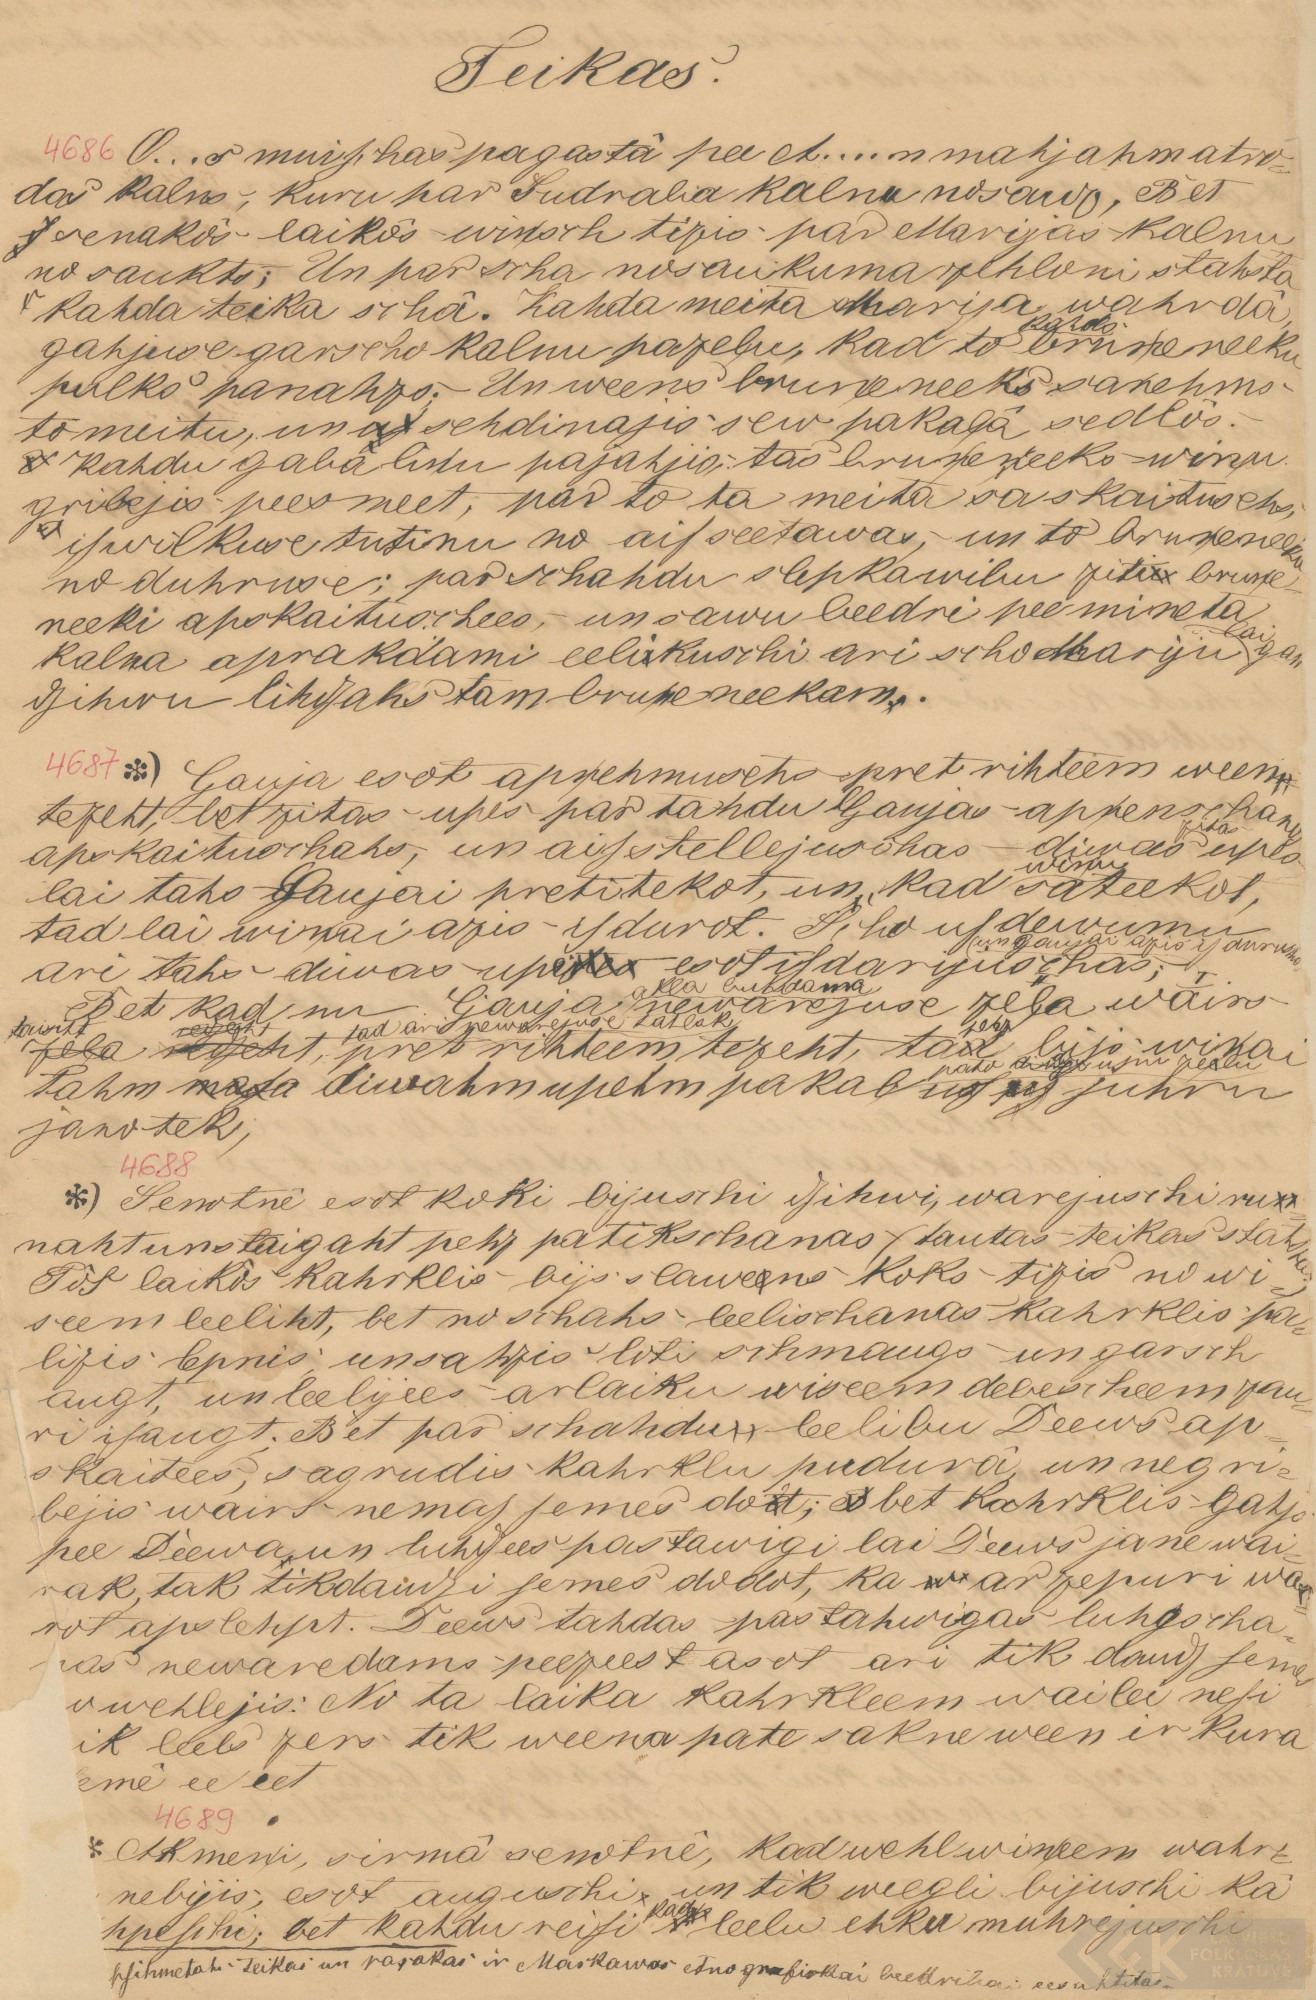 Teikas.
4686 O...s muischas pagastâ pee A.....n mahjahm atro=
das kalns, kuru par Sudraba kalnu nosauz, Bet
senakôs laikôs winsch tizis par Marijas kalnu
nosaukts; Un par scha nosaukuma zehloni stahsta
kahda teika schâ. Kahda meita Marija wahrdâ,
gahjuse garscho kalnu pazelu, kad to kahds bruneneeku
pulks panahzs; Un weens bruneneeks sanehms
to meitu, un sehdinajis sew pakalâ sedlôs.
kahdu gabâlinu pajahjis tas bruneneeks winu
gribejis peesmeet, par to ta meita sâskaitusehs,
iswilkuse tutinu no aisseetawas, un to bruneneeku
noduhruse; par schahdu slepkawibu ziti brune=
neeki apskaituschees, un sawu beedri pee mineta
kalna aprakdami eelikuschi ari scho Mariju lai gan
dsihwu lihdsahs tam bruneneekam.
4687 *) Gauja esot apnehmusehs pret rihteem ween
tezeht, bet zitas upes par tahdu Gaujas apnemschanu
apskaituschahs, un aisstellejuschas diwas zitas upes
lai tahs Gaujai pretitekot, un kad winu sateekot,
tad lai winai azis isdurot. Scho usdewumu
ari tahs diwas upes esot isdarijuschas; un Gaujai azis isdurusas
Bet kad nu Gauja akla buhdama newarejuse zela wairs
taisiht redseht, tad ari newarejuse tahlak pret rihteem tezeht, tad bijs winai
tahm diwahm upehm pakal pa to zelu us juhru
jano tek;
4688
*) Senotnê esot koki bijuschi dsihwi, warejuschi ru=
naht un staigaht pehz patikschanas (tautas teikas stahsta)
Tôs laikôs kahrklis bijs slawens koks tizis no wi=
seem leeliht, bet no schahs leelischanas kahrklis pa=
lizis lepnis, un sahzis loti schmaugs un garsch
augt, un leelijees ar laiku wiseem debescheem zau=
ri isaugt. Bet par schahdu leelibu Deews ap=
skaitees, sagrudis kahrklu pudurâ, un negri=
bejis wairs nemas semes dot; bet kahrklis gahjs
pee Deewa, un luhdsees pastawigi lai Deews ja ne wai=
rak, tak tikdaudsi semes dodot, ka ar zepuri wa=
rot apslehpt. Deews tahdas pastahwigas luhgscha=
nas newaredams peezeest asot ari tik daudz semes
wehlejis. No ta laika kahrkleem wai lei nesi
ik leels zers tik weena pate sakne ween ir kura
emê eeeet
4689
* Akmeni, sirmâ senotnê, kad wehl wineem wahr=
nebijis, esot auguschi, un tik weegli bijuschi kâ
bet kahdu reisi kad leelu ehku muhrejuschi
Sihmetahs teikas un rasakas ir Maskawas etnografiskai beedribai eesuhtitas